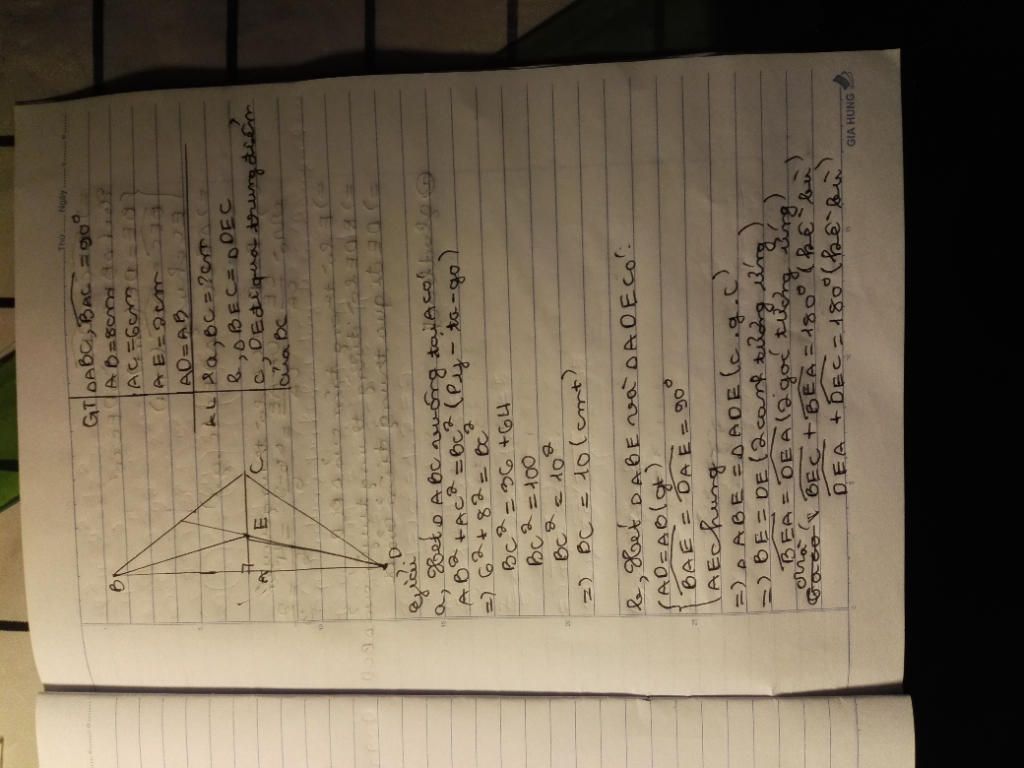 Thứ Ngày
B
A
E
C
D
GT ΔABC, BAC = 90°
AB = 8cm
AC = 6cm
AE = 2cm
AD = AB
KL a, BC = ? cm
b, ΔBEC = ΔDEC
c, DE đi qua trung điểm
của BC
Giải:
a, Xét ΔABC vuông tại A có
AB² + AC² = BC² (Py-ta-go)
=> 6² + 8² = BC²
BC² = 36 + 64
BC² = 100
BC² = 10²
=> BC = 10 (cm)
b, Xét ΔABE và ΔADE có:
AD = AB (gt)
BAE = DAE = 90°
AE chung
=> ΔABE = ΔADE (c.g.c)
=> BE = DE (2 cạnh tương ứng)
BEA = DEA (2 góc tương ứng)
mà BEC + BEA = 180° (kề bù)
DEA + DEC = 180° (kề bù)
GIA HUNG